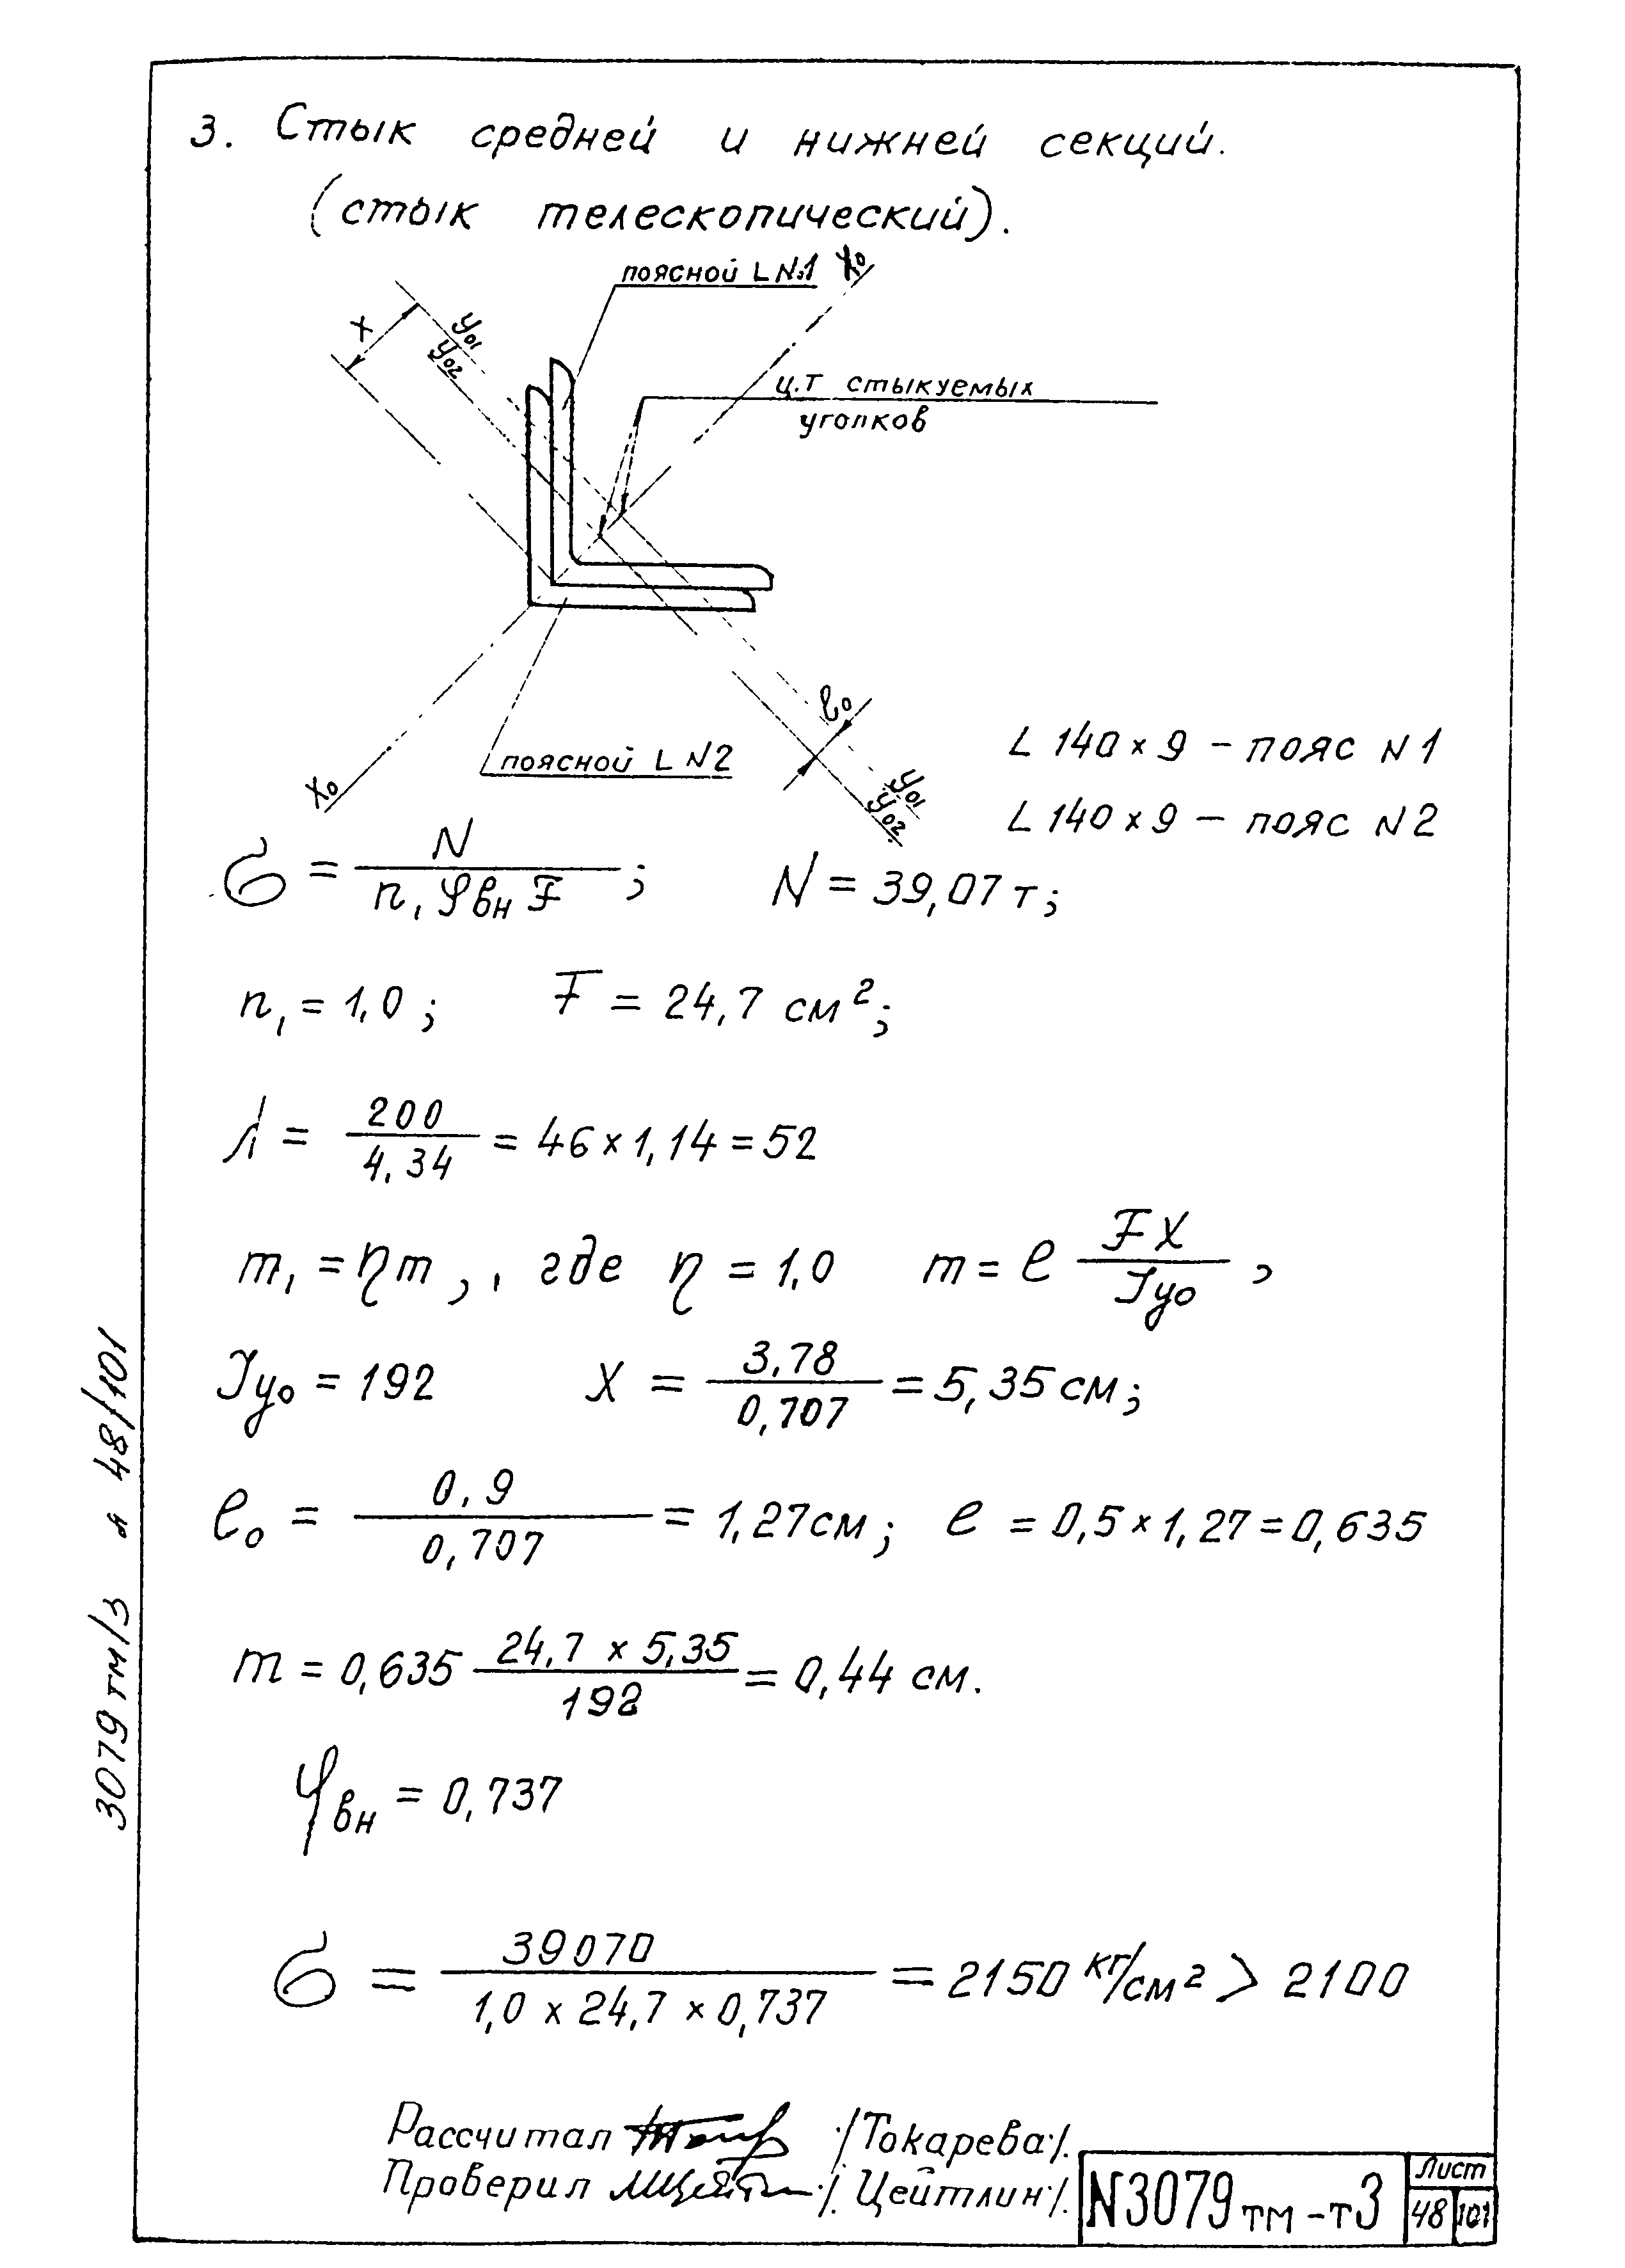 3. Стык средней и нижней секций.
(стык телескопический).
поясной L N1
X0
X
У01
У02
ц.т стыкуемых
уголков
e0
L 140×9 – пояс N1
поясной L N2
У01
У02
X0
L 140×9 – пояс N2
σ = N / n₁ φвн F ; N = 39,07 т;
n₁ = 1,0 ; F = 24,7 см²;
λ = 200 / 4,34 = 46 × 1,14 = 52
m₁ = ηm, , где η = 1,0 m = e FX / Jyo ,
Jyo = 192 X = 3,78 / 0,707 = 5,35 см;
e₀ = 0,9 / 0,707 = 1,27 см; e = 0,5 × 1,27 = 0,635
m = 0,635 24,7 × 5,35 / 192 = 0,44 см.
φвн = 0,737
σ = 39070 / 1,0 × 24,7 × 0,737 = 2150 кг/см² > 2100
Рассчитал /Токарева/.
Проверил /Цейтлин/.
N3079тм-т3
Лист
48 101
3079тм/3 л 48/101